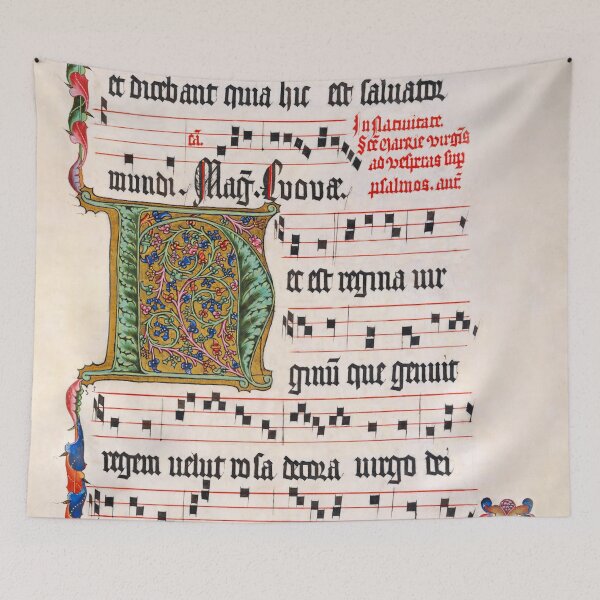 et dicebant quia hic est saluator
In Natiuitate
Scē Marie virgīs
ad vesperas sup
psalmos. ant̄.
mundi. Maḡ. Evovæ.
Hec est regina uir
ginū que genuit
regem uelut rosa decora uirgo dei